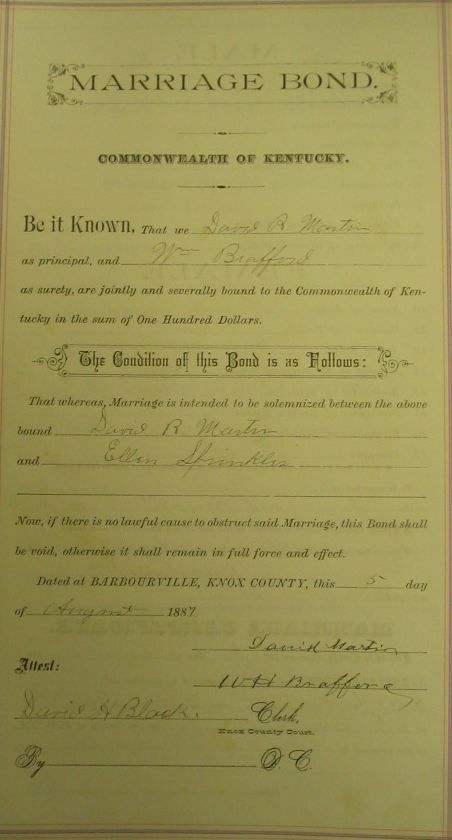 MARRIAGE BOND.
COMMONWEALTH OF KENTUCKY.
Be it Known, That we David R Martin
as principal, and Wm Brafford
as surety, are jointly and severally bound to the Commonwealth of Ken-
tucky in the sum of One Hundred Dollars.
The Condition of this Bond is as Follows:
That whereas, Marriage is intended to be solemnized between the above
bound David R Martin
and Ellen Sprinkles
Now, if there is no lawful cause to obstruct said Marriage, this Bond shall
be void, otherwise it shall remain in full force and effect.
Dated at BARBOURVILLE, KNOX COUNTY, this 5 day
of August 1887
David Martin
Attest:
WH Brafford
David H Black. Clerk,
Knox County Court.
By D. C.